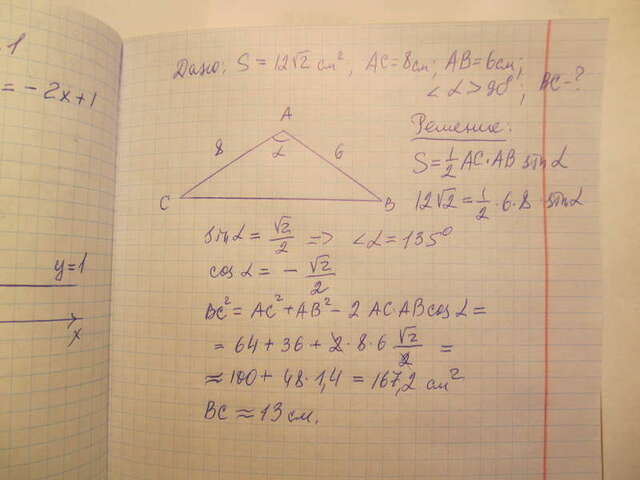 . 1
= -2x+1
y=1
x
Дано: S = 12√2 см², AC=8см; AB=6см;
<α>90°; BC-?
A
8
α
6
C
B
Решение:
S=1/2 AC·AB sin α
12√2=1/2·6·8·sin α
sin α = √2/2 => <α=135°
cos α = -√2/2
BC²= AC²+AB²- 2 AC·AB cos α =
= 64+36+2·8·6 √2/2 =
≈ 100+ 48·1,4 = 167,2 см²
BC ≈ 13 см.